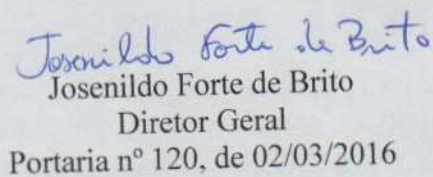 Josenildo Forte de Brito
Josenildo Forte de Brito
Diretor Geral
Portaria nº 120, de 02/03/2016